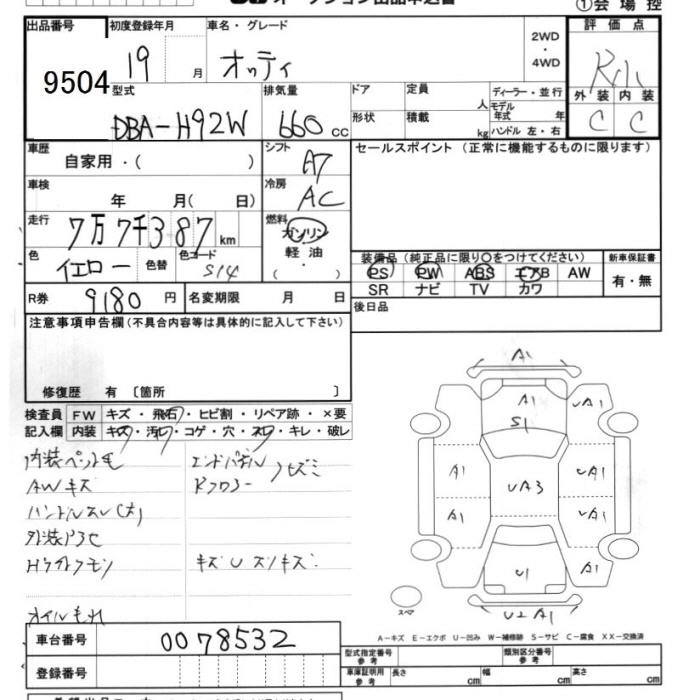 オークション出品申込書
①会場控
出品番号 9504
初度登録年月 19 月
車名・グレード オッティ
2WD・4WD
評価点 R小
型式 DBA-H92W
排気量 660 cc
ドア
形状
定員 人
積載 kg
ディーラー・並行
モデル年式 年
ハンドル 左・右
外装 内装
C C
車歴 自家用・( )
シフト A7
セールスポイント (正常に機能するものに限ります)
車検 年 月( 日)
冷房 AC
走行 7万7千387 km
燃料 ガソリン 軽油 ( ・ )
色 イエロー 色替 色コード S14
装備品 (純正品に限り○をつけてください)
新車保証書
PS PW ABS エアB AW
有・無
SR ナビ TV カワ
R券 9180 円
名変期限 月 日
後日品
注意事項申告欄 (不具合内容等は具体的に記入して下さい)
修復歴 有 〔箇所 〕
検査員 FW キズ・飛石・ヒビ割・リペア跡・×要
記入欄 内装 キズ・汚レ・コゲ・穴・スレ・キレ・破レ
内装ペット毛
AWキズ
ハンドルスレ(大)
外装アセ
オイルもれ
エンドパネル
Rフロアー
ヒズミ
キズUスリキズ
A1
A1
S1
A1
A1
A1
UA3
A1
A1
U1
A1
U2 A1
スペア
A－キズ E－エクボ U－凹み W－補修跡 S－サビ C－腐食 XX－交換済
車台番号 0078532
型式指定番号 参考
類別区分番号 参考
登録番号
車庫証明用 参考 長さ cm 幅 cm 高さ cm